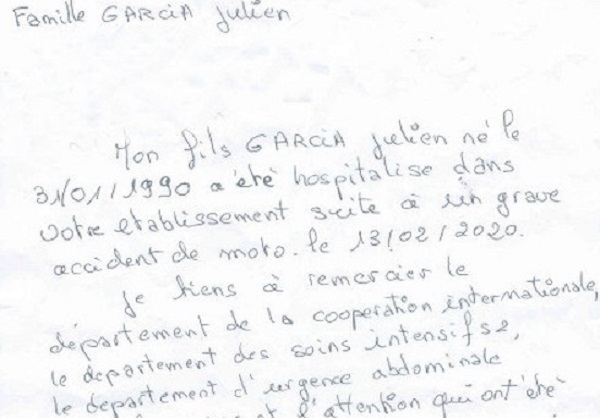 Famille GARCiA Julien
Mon fils GARCiA Julien né le
31/01/1990 a été hospitalise dans
votre etablissement suite à un grave
accident de moto. le 13/02/2020.
Je tiens à remercier le
département de la cooperation internationale,
le departement des soins intensifs 2,
le departement d'urgence abdominale
et l'attention qui ont été